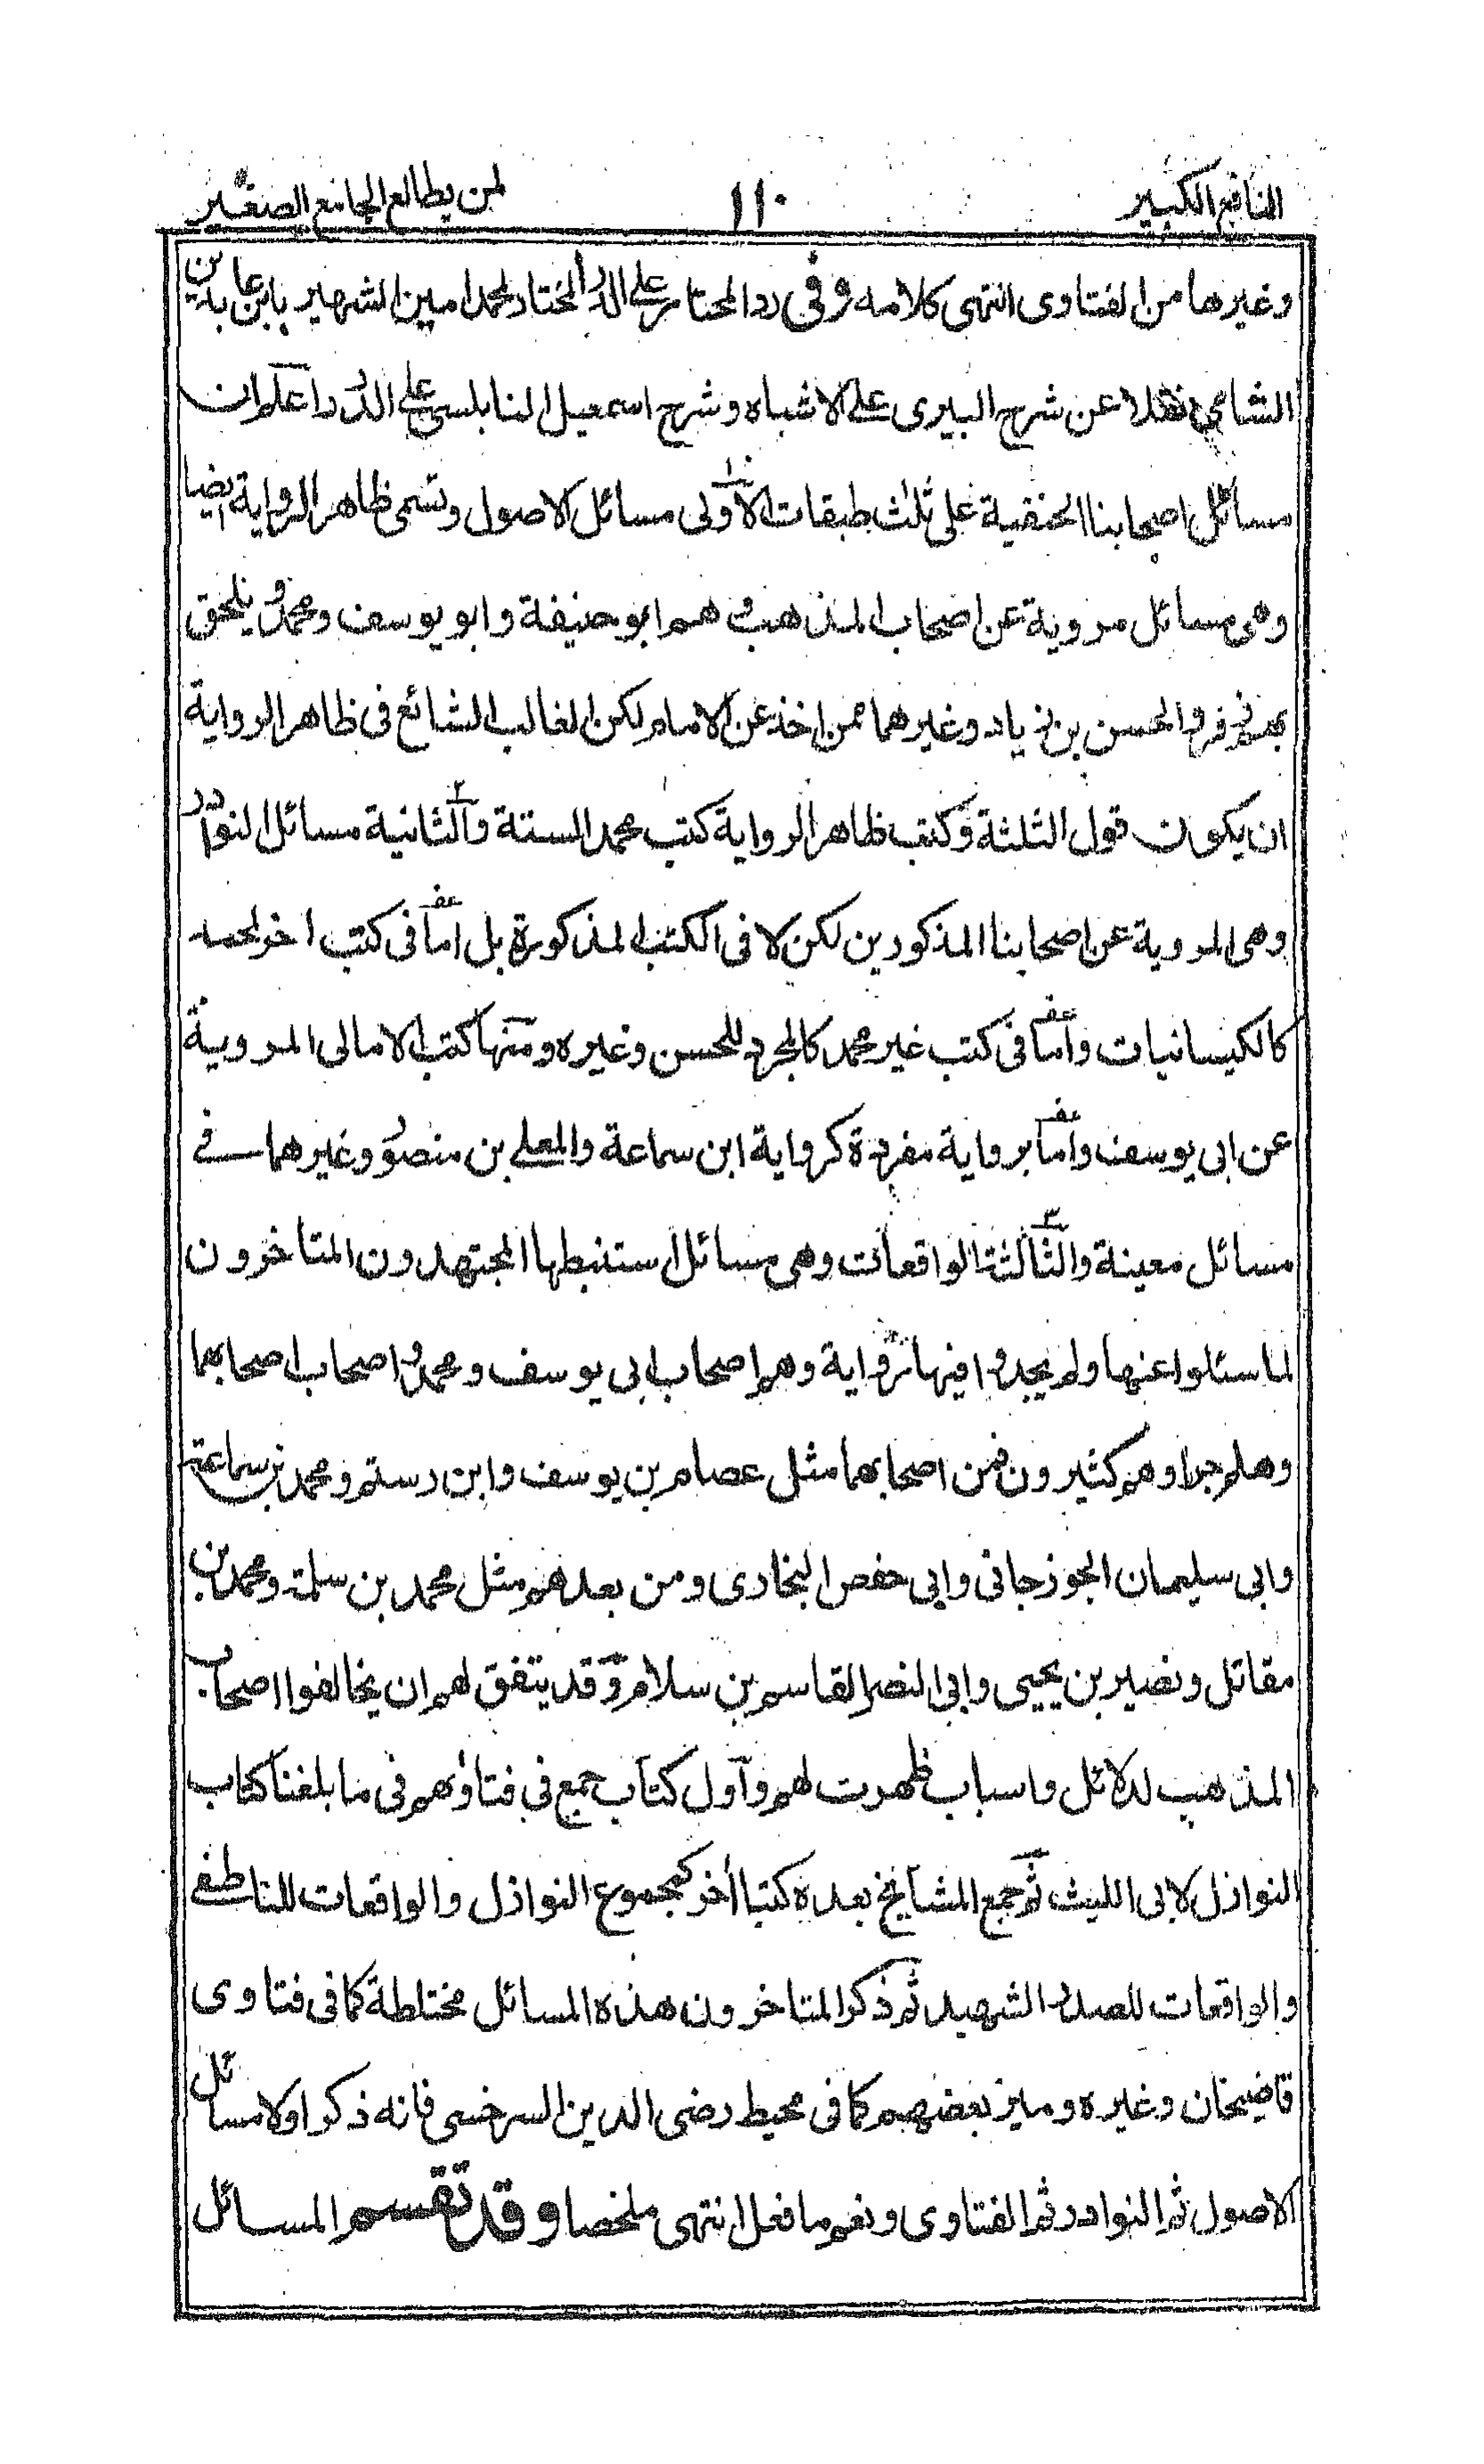 النافع الكبير ١١٠ لمن يطالع الجامع الصغير
وغيرها من الفتاوى انتهى كلامه وفى رد المحتار على الدر المختار لمحمد امين الشهير بابن عابدين
الشامى نقلا عن شرح البيرى على الاشباه وشرح اسمعيل النابلسى على الدرر اعلم ان
مسائل اصحابنا الحنفية على ثلث طبقات الاولى مسائل الاصول وتسمى ظاهر الرواية ايضا
وهى مسائل مروية عن اصحاب المذهب وهم ابو حنيفة وابو يوسف ومحمد ويلحق
بهم زفر والحسن بن زياد وغيرهما ممن اخذ عن الامام لكن الغالب الشائع فى ظاهر الرواية
ان يكون قول الثلثة وكتب ظاهر الرواية كتب محمد الستة والثانية مسائل النوادر
وهى المروية عن اصحابنا المذكورين لكن لا فى الكتب المذكورة بل اما فى كتب اخر لمحمد
كالكيسانيات واما فى كتب غير محمد كالمجرد للحسن وغيره ومنها كتب الامالى المروية
عن ابى يوسف واما برواية مفردة كرواية ابن سماعة والمعلى بن منصور وغيرهما فى
مسائل معينة والثالثة الواقعات وهى مسائل استنبطها المجتهدون المتاخرون
لما سئلوا عنها ولم يجدوا فيها رواية وهم اصحاب ابى يوسف ومحمد واصحاب اصحابهما
وهلم جرا وهم كثيرون فمن اصحابهما مثل عصام بن يوسف وابن رستم ومحمد بن سماعة
وابى سليمان الجوزجانى وابى حفص البخارى ومن بعدهم مثل محمد بن سلمة ومحمد بن
مقاتل ونصير بن يحيى وابى النصر القاسم بن سلام وقد يتفق لهم ان يخالفوا اصحاب
المذهب لدلائل واسباب ظهرت لهم واول كتاب جمع فى فتاوٰهم فى ما بلغنا كتاب
النوازل لابى الليث ثم جمع المشايخ بعده كتبا أخر كمجموع النوازل والواقعات للناطفى
والواقعات للصدر الشهيد ثم ذكر المتاخرون هذه المسائل مختلطة كما فى فتاوى
قاضيخان وغيره وميز بعضهم كما فى محيط رضى الدين السرخسى فانه ذكر اولا مسائل
الاصول ثم النوادر ثم الفتاوى ونعم ما فعل انتهى ملخصا وقد تقسم المسائل